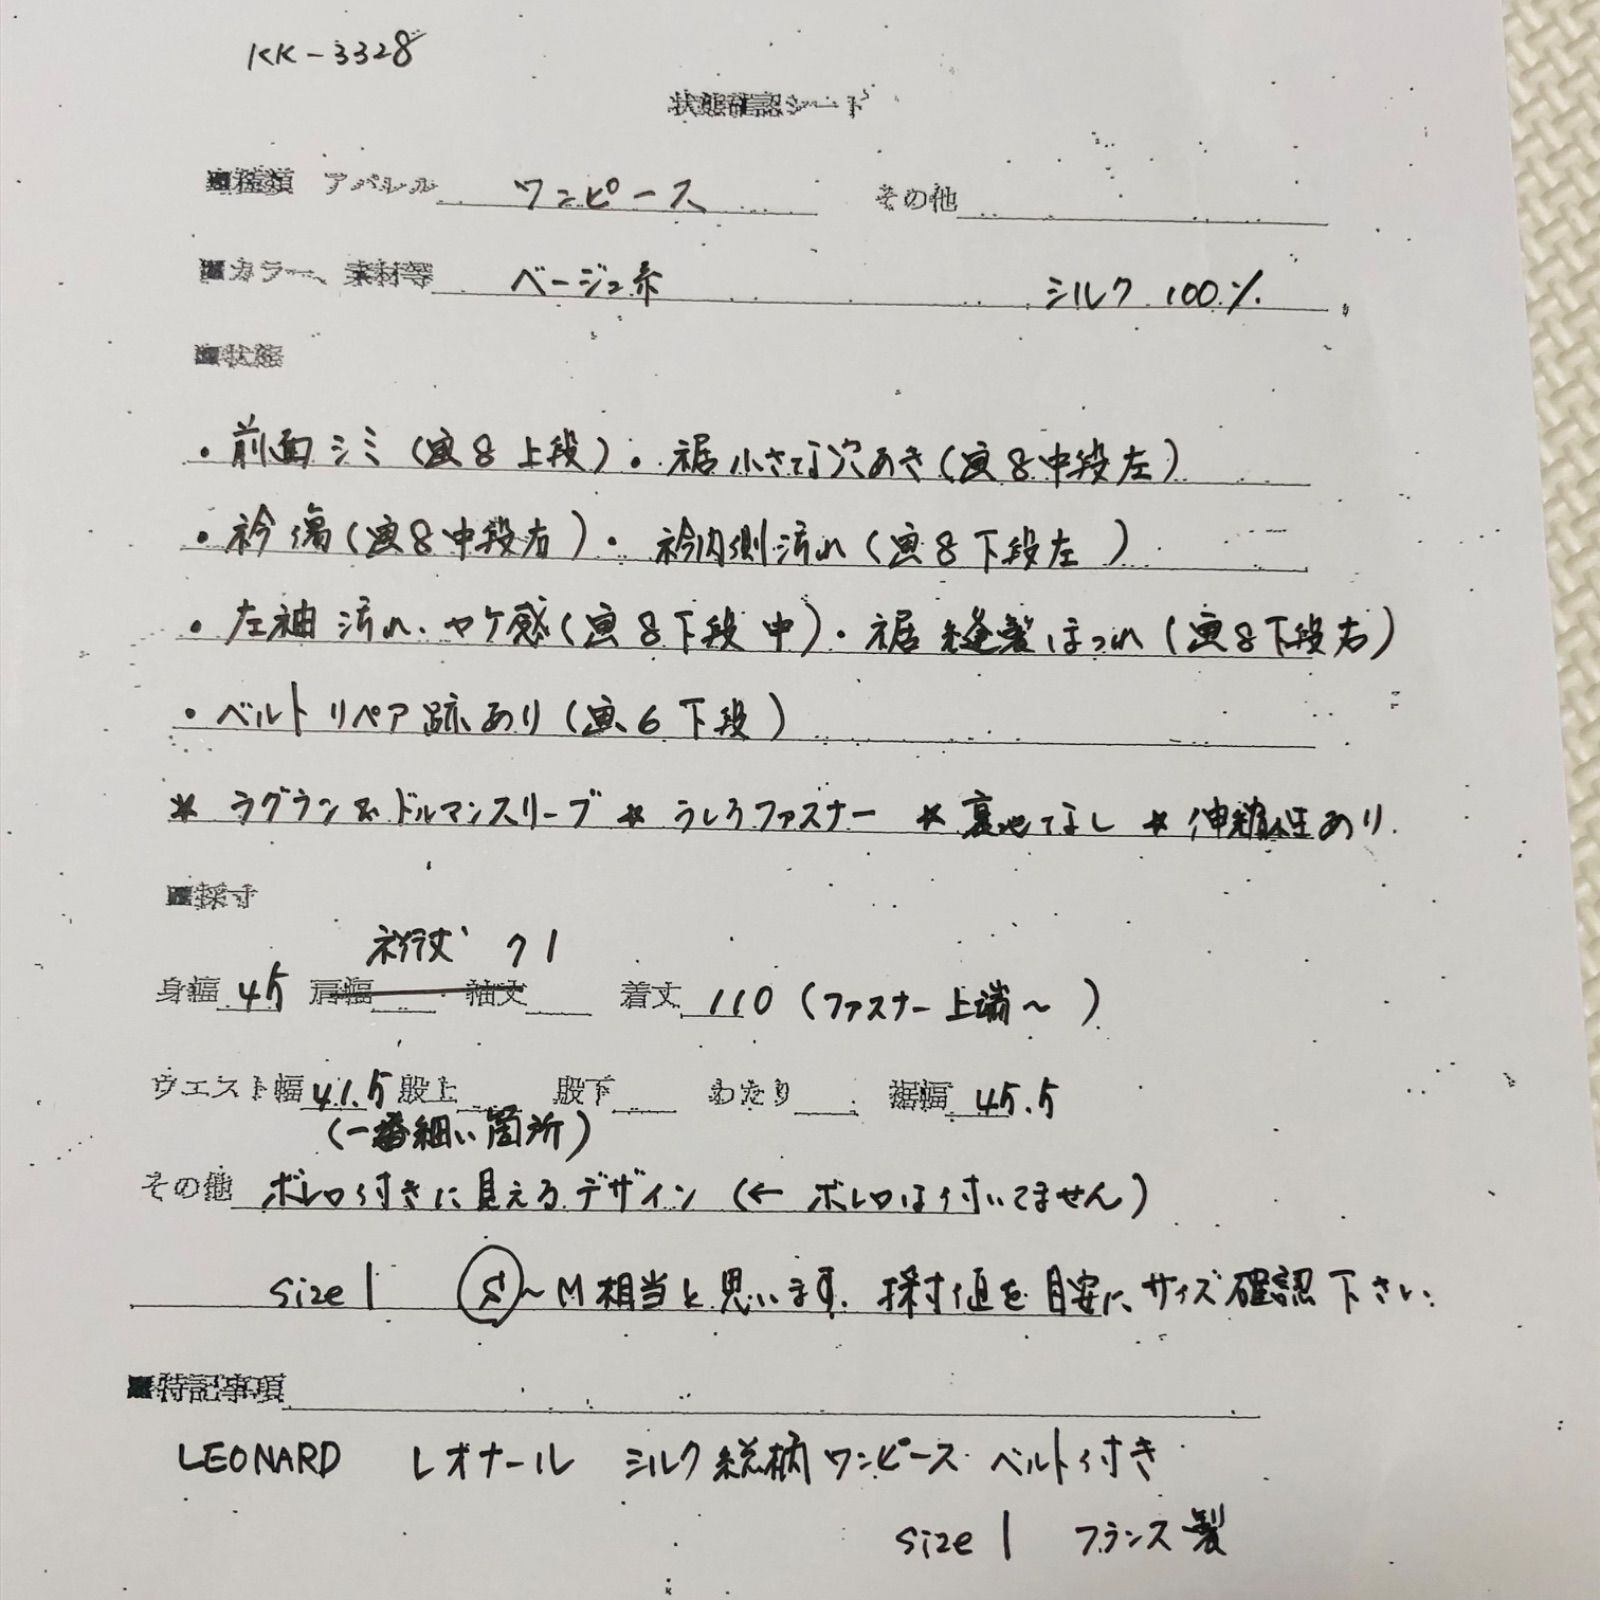 KK-3328
状態確認シート
■種類 アパレル ワンピース その他
■カラー、素材等 ベージュ系 シルク 100%
■状態
・前面シミ(画8上段)・裾小さな穴あき(画8中段左)
・衿傷(画8中段右)・衿内側汚れ(画8下段左)
・左袖汚れ、ヤケ感(画8下段中)・裾縫製ほつれ(画8下段右)
・ベルトリペア跡あり(画6下段)
* ラグラン&ドルマンスリーブ * うしろファスナー * 裏地なし * 伸縮性あり
■採寸
裄丈 71
身幅 45 肩幅 袖丈 着丈 110 (ファスナー上端〜)
ウエスト幅 41.5 股上 股下 わたり 裾幅 45.5
(一番細い箇所)
その他 ボレロ付きに見えるデザイン (← ボレロは付いてません)
size 1 S〜M相当と思います. 採寸値を目安にサイズ確認下さい.
■特記事項
LEONARD レオナール シルク総柄ワンピース ベルト付き
size 1 フランス製